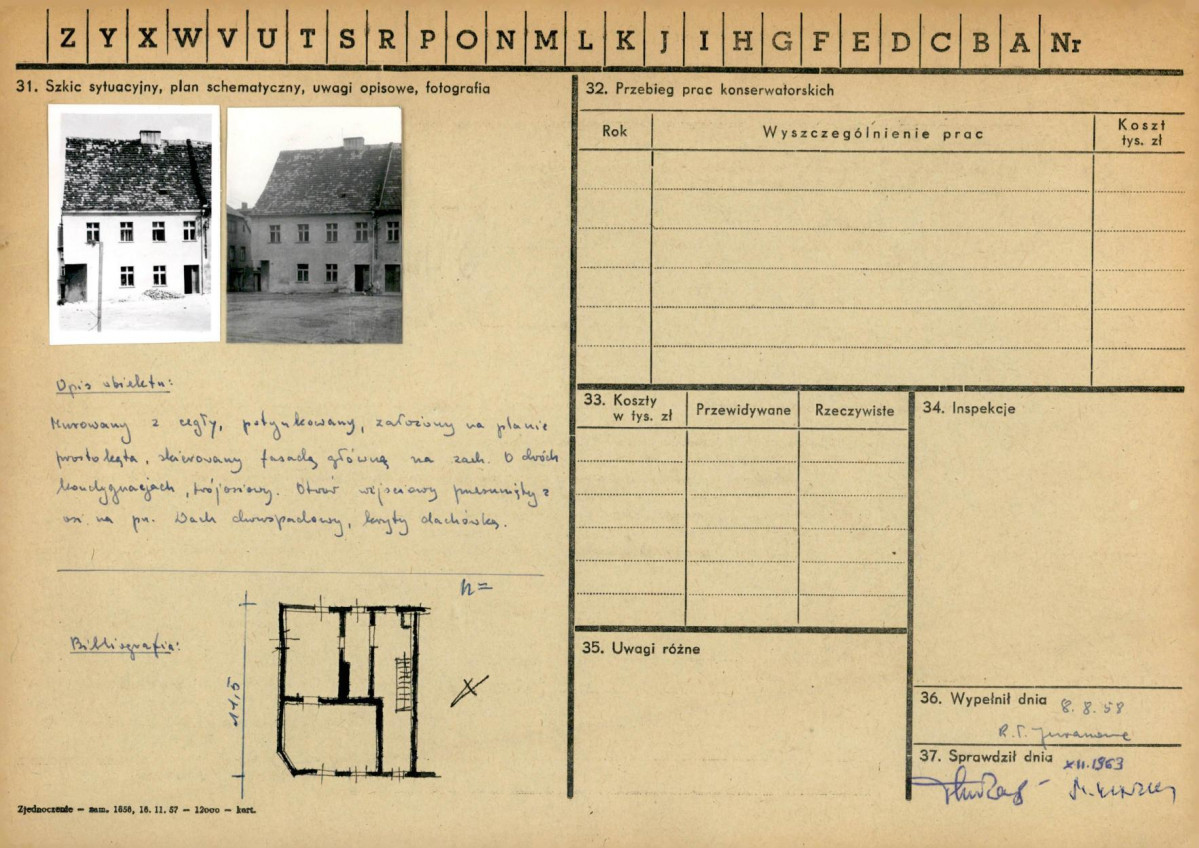 Z Y X W V U T S R P O N M L K J I H G F E D C B A Nr
31. Szkic sytuacyjny, plan schematyczny, uwagi opisowe, fotografia
Opis obiektu:
Murowany z cegły, potynkowany, założony na planie
prostokąta, skierowany fasadą główną na zach. O dwóch
kondygnacjach, trójosiowy. Otwór wejściowy przesunięty z
osi na pn. Dach dwuspadowy, kryty dachówką.
h=
Bibliografia:
11,5
Zjednoczenie — zam. 1656, 16. 11. 57 — 12000 — kart.
32. Przebieg prac konserwatorskich
Rok
Wyszczególnienie prac
Koszt
tys. zł
33. Koszty
w tys. zł
Przewidywane
Rzeczywiste
34. Inspekcje
35. Uwagi różne
36. Wypełnił dnia 8. 8. 58
37. Sprawdził dnia XII. 1963